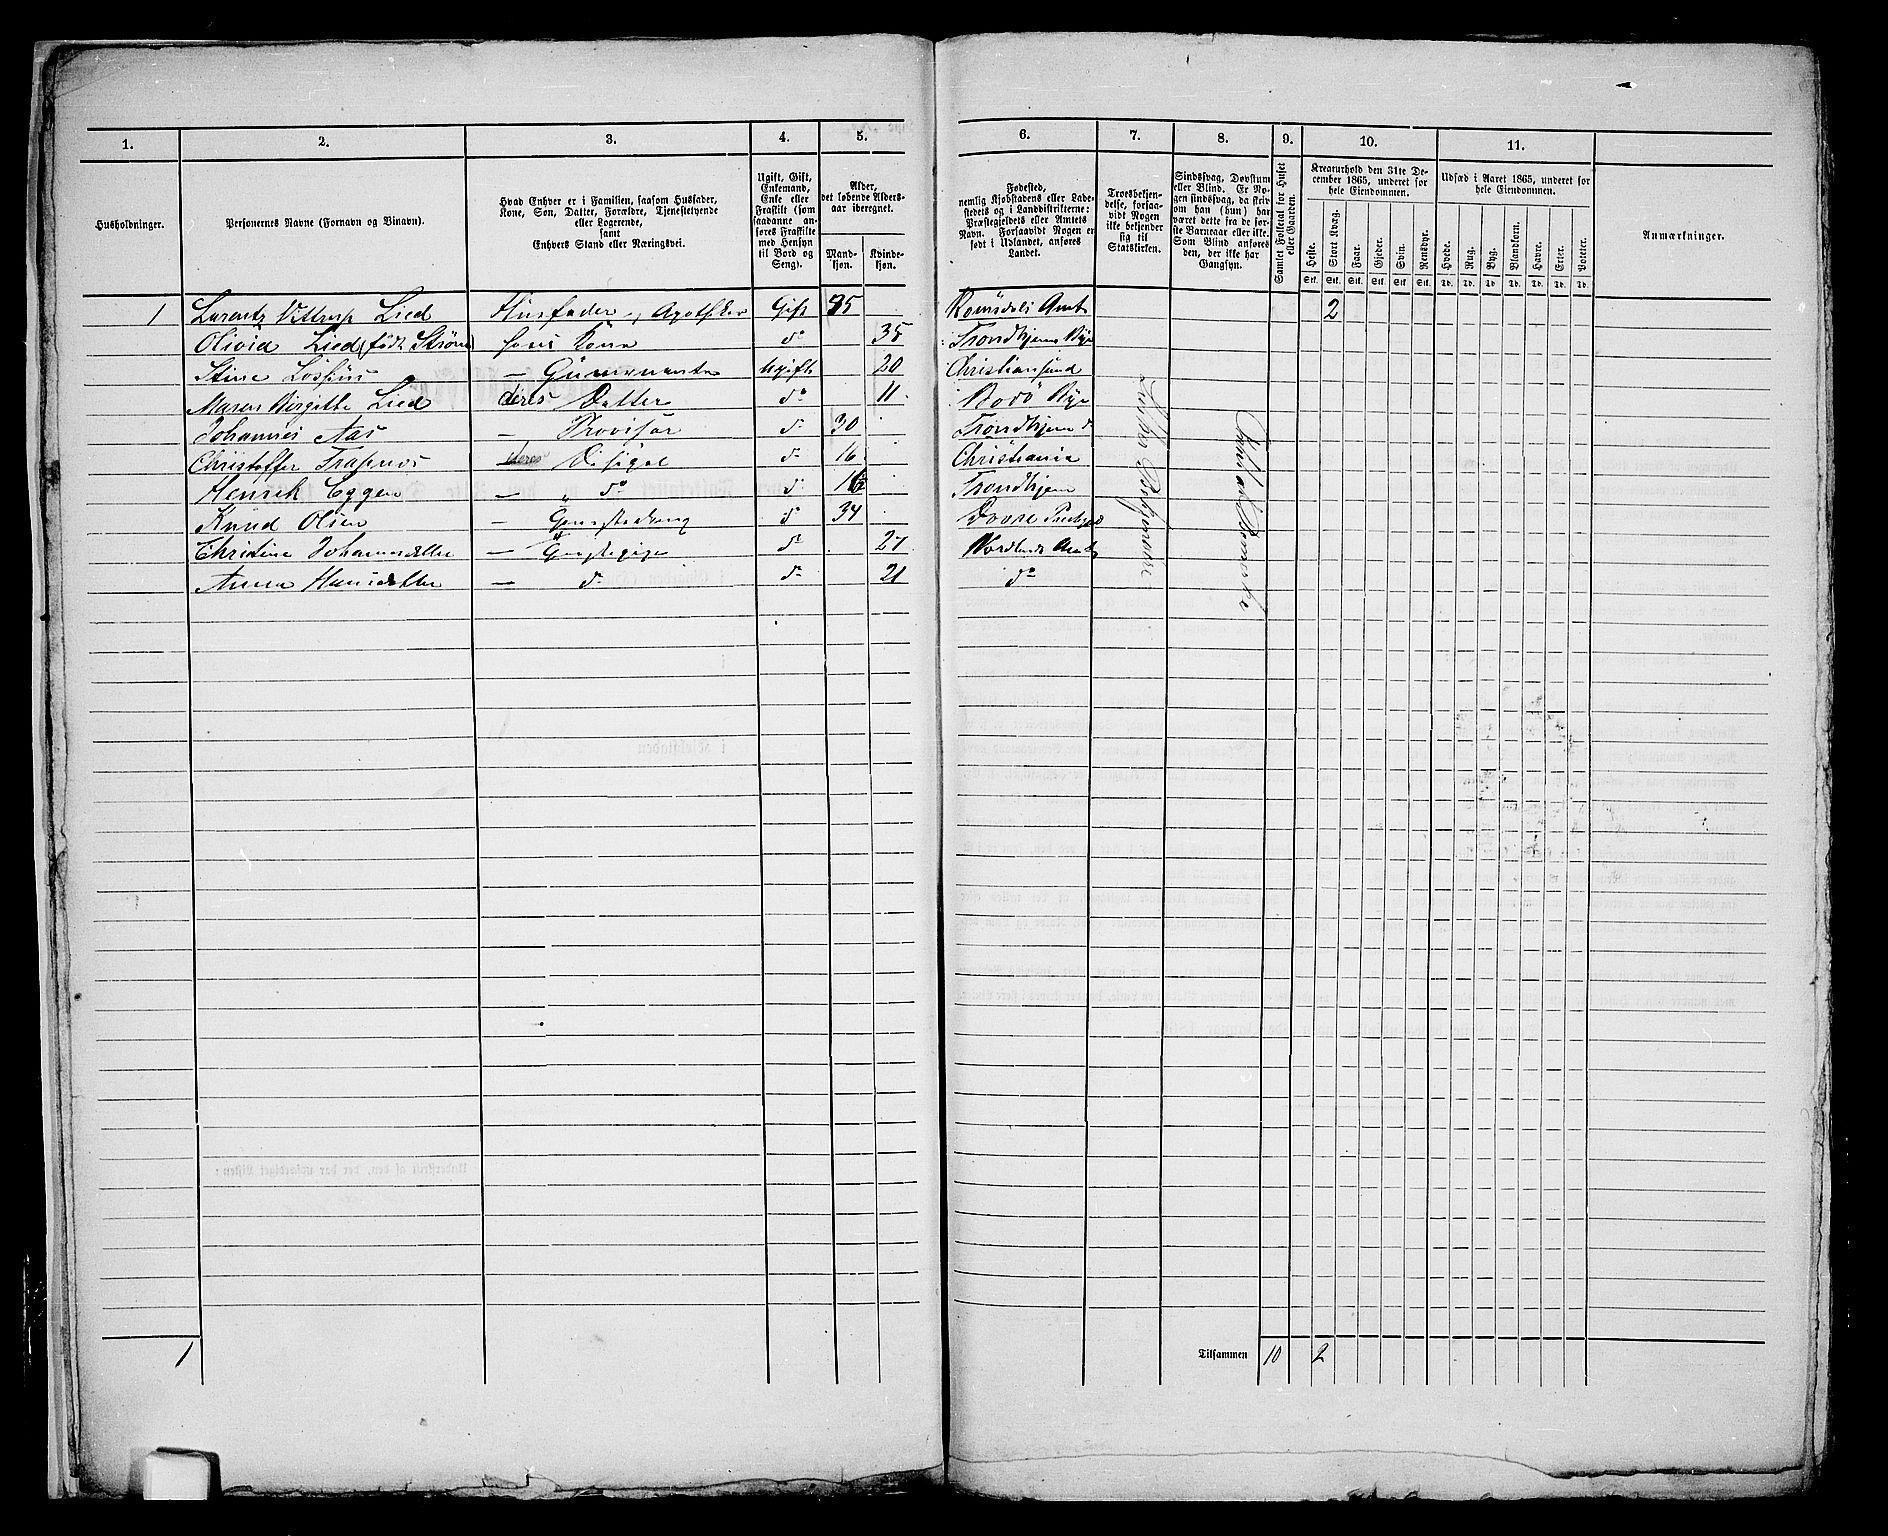 1. 2. 3. 4. 5. 6. 7. 8. 9. 10. 11.
Husholdninger.
Personernes Navne (Fornavn og Binavn).
Hvad Enhver er i Familien, saasom Husfader, Kone, Søn, Datter, Forældre, Tjenestetyende eller Logerende, samt Enhvers Stand eller Næringsvei.
Ugift, Gift, Enkemand, Enke eller Fraskilt (som saadanne anføres Fraskilte med Hensyn til Bord og Seng).
Alder, det løbende Aldersaar iberegnet.
Mandkjøn. Kvindekjøn.
Fødested, nemlig Kjøbstadens eller Ladestedets og i Landdistrikterne: Præstegjeldets eller Amtets Navn. Forsaavidt Nogen er født i Udlandet, anføres Landet.
Troesbekjendelse, forsaavidt Nogen ikke bekjender sig til Statskirken.
Sindssvag, Døvstum eller Blind. Er Nogen sindssvag, da skriv om han (hun) har været dette fra de første Barneaar eller ikke. Som Blind anføres den, der ikke har Gangsyn.
Samlet Folketal for Huset eller Gaarden.
Kreaturhold den 31te December 1865, underet for hele Eiendommen.
Heste. Stort Kvæg. Faar. Gjeder. Svin. Rensdyr.
Stk. Stk. Stk. Stk. Stk. Stk.
Udsæd i Aaret 1865, underet for hele Eiendommen.
Hvede. Rug. Byg. Blandkorn. Havre. Erter. Poteter.
Td. Td. Td. Td. Td. Td. Td.
Anmærkninger.
1 Lorentz Vittrup Lied Husfader, Apotheker Gift 35 Romsdals Amt 2
Olivia Lied (født Strøm) hans Kone do 35 Trondhjems Bye
Stine Ugift 20 Christiansund
Maren Birgitte Lied deres Datter do 11 Bodö Bye
Johannes Aas — Provisor do 30 Trondhjem
Christoffer — Disipel do 16 Christiania
Henrik Eggen — " do do 16 Trondhjem
Knud Olsen — do 34
Christine Johannesdatter — do 27 Nordlands Amt
Anna Hansdatter — do do 21 do
1
Tilsammen 10 2